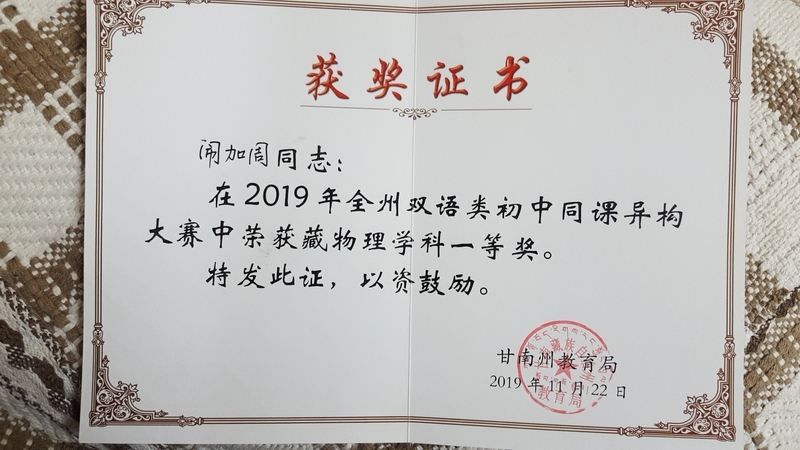 获奖证书
闹加周同志：
在2019年全州双语类初中同课异构
大赛中荣获藏物理学科一等奖。
特发此证，以资鼓励。
甘南州教育局
2019年11月22日
教育局